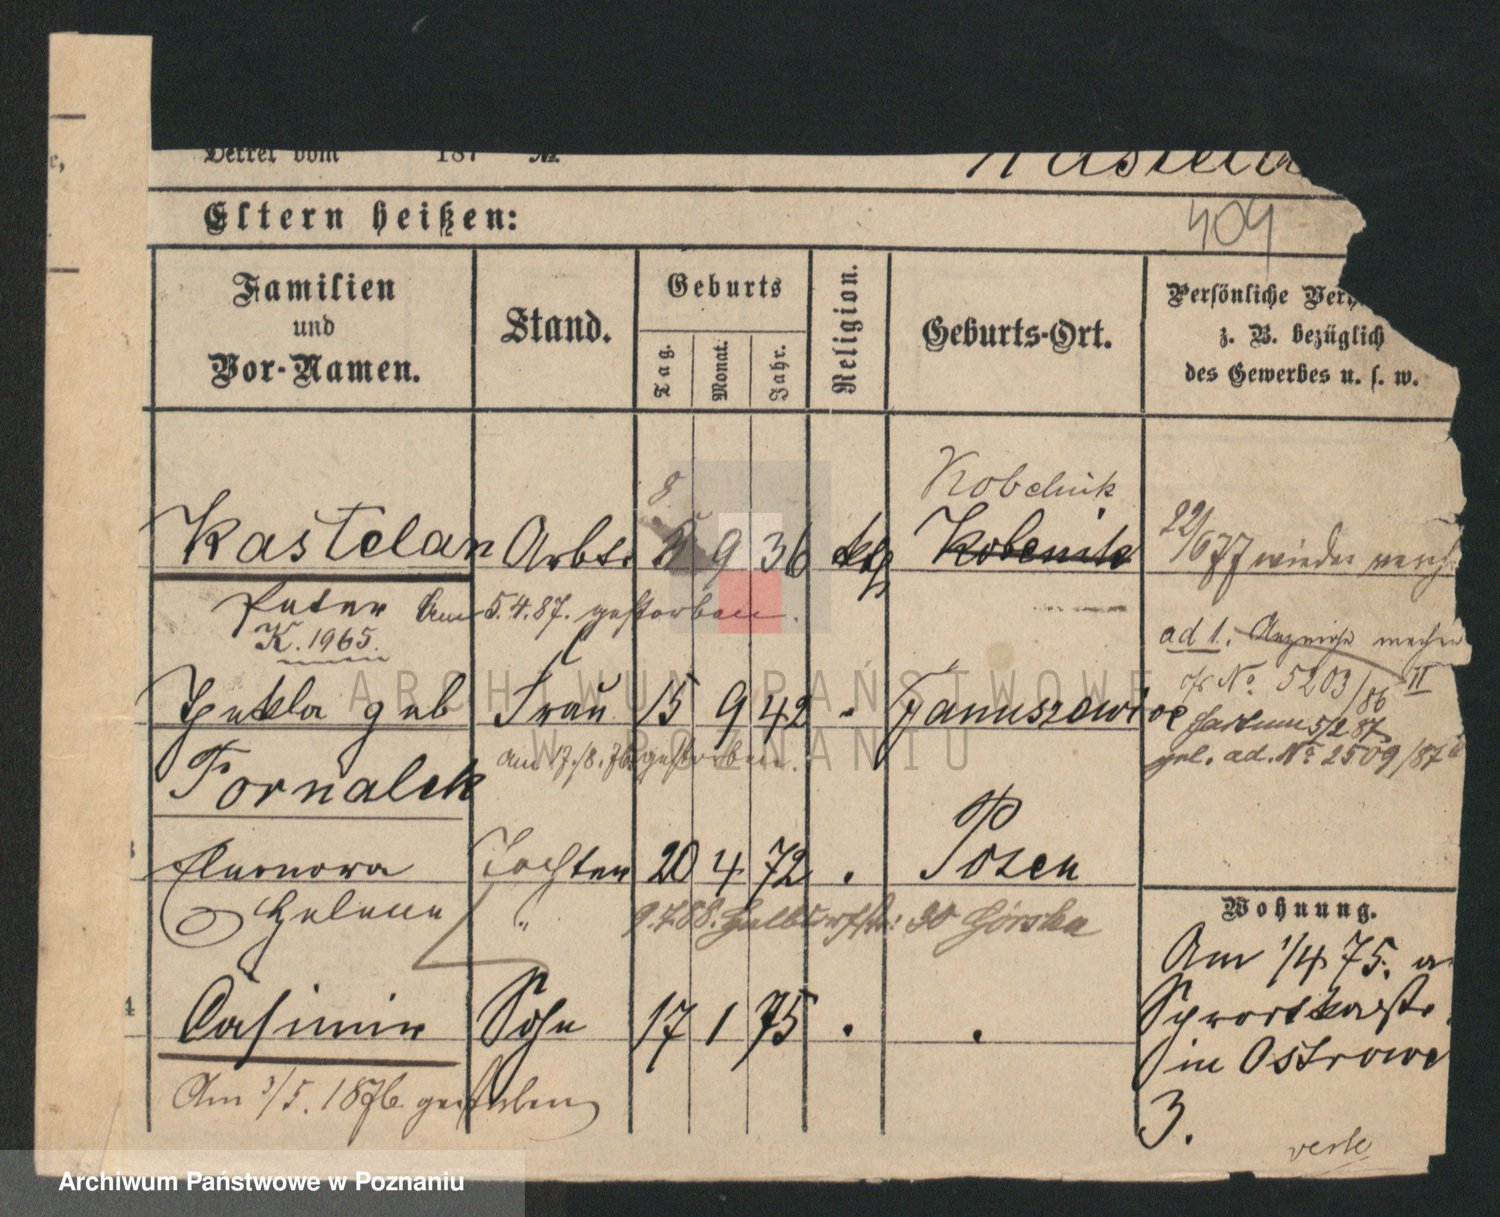 Verrel vom 187 №
Kastela
Eltern heißen:
404
Familien
und
Vor-Namen.
Stand.
Geburts
Tag.
Monat.
Jahr.
Religion.
Geburts-Ort.
Persönliche
z. B. bezüglich
des Gewerbes u. s. w.
Kobelnik
8
Kastelan Arbtr 9 36 kth Kobelnik
22/6 77 wieder
Peter Am 5.4.87. gestorben.
K. 1965.
ad 1. Anzeige machen
№ 5203/86 II
Thekla geb Frau 15 9 42 " Januszewice
5/2 87
ad. № 2509/87
am 17./8. 76. gestorben.
Tornalek
Eleonora Tochter 20 4 72 " Posen
Helene " 9.7.88. Halbdorfstr: 30 Górska
Wohnung.
Am 1/4 75. a.
Casimir Sohn 17 1 75 " "
Schrodkastr.
in Ostrowe
3.
Am 3/5. 1876. gestorben
verte
ARCHIWUM PAŃSTWOWE
W POZNANIU
Archiwum Państwowe w Poznaniu